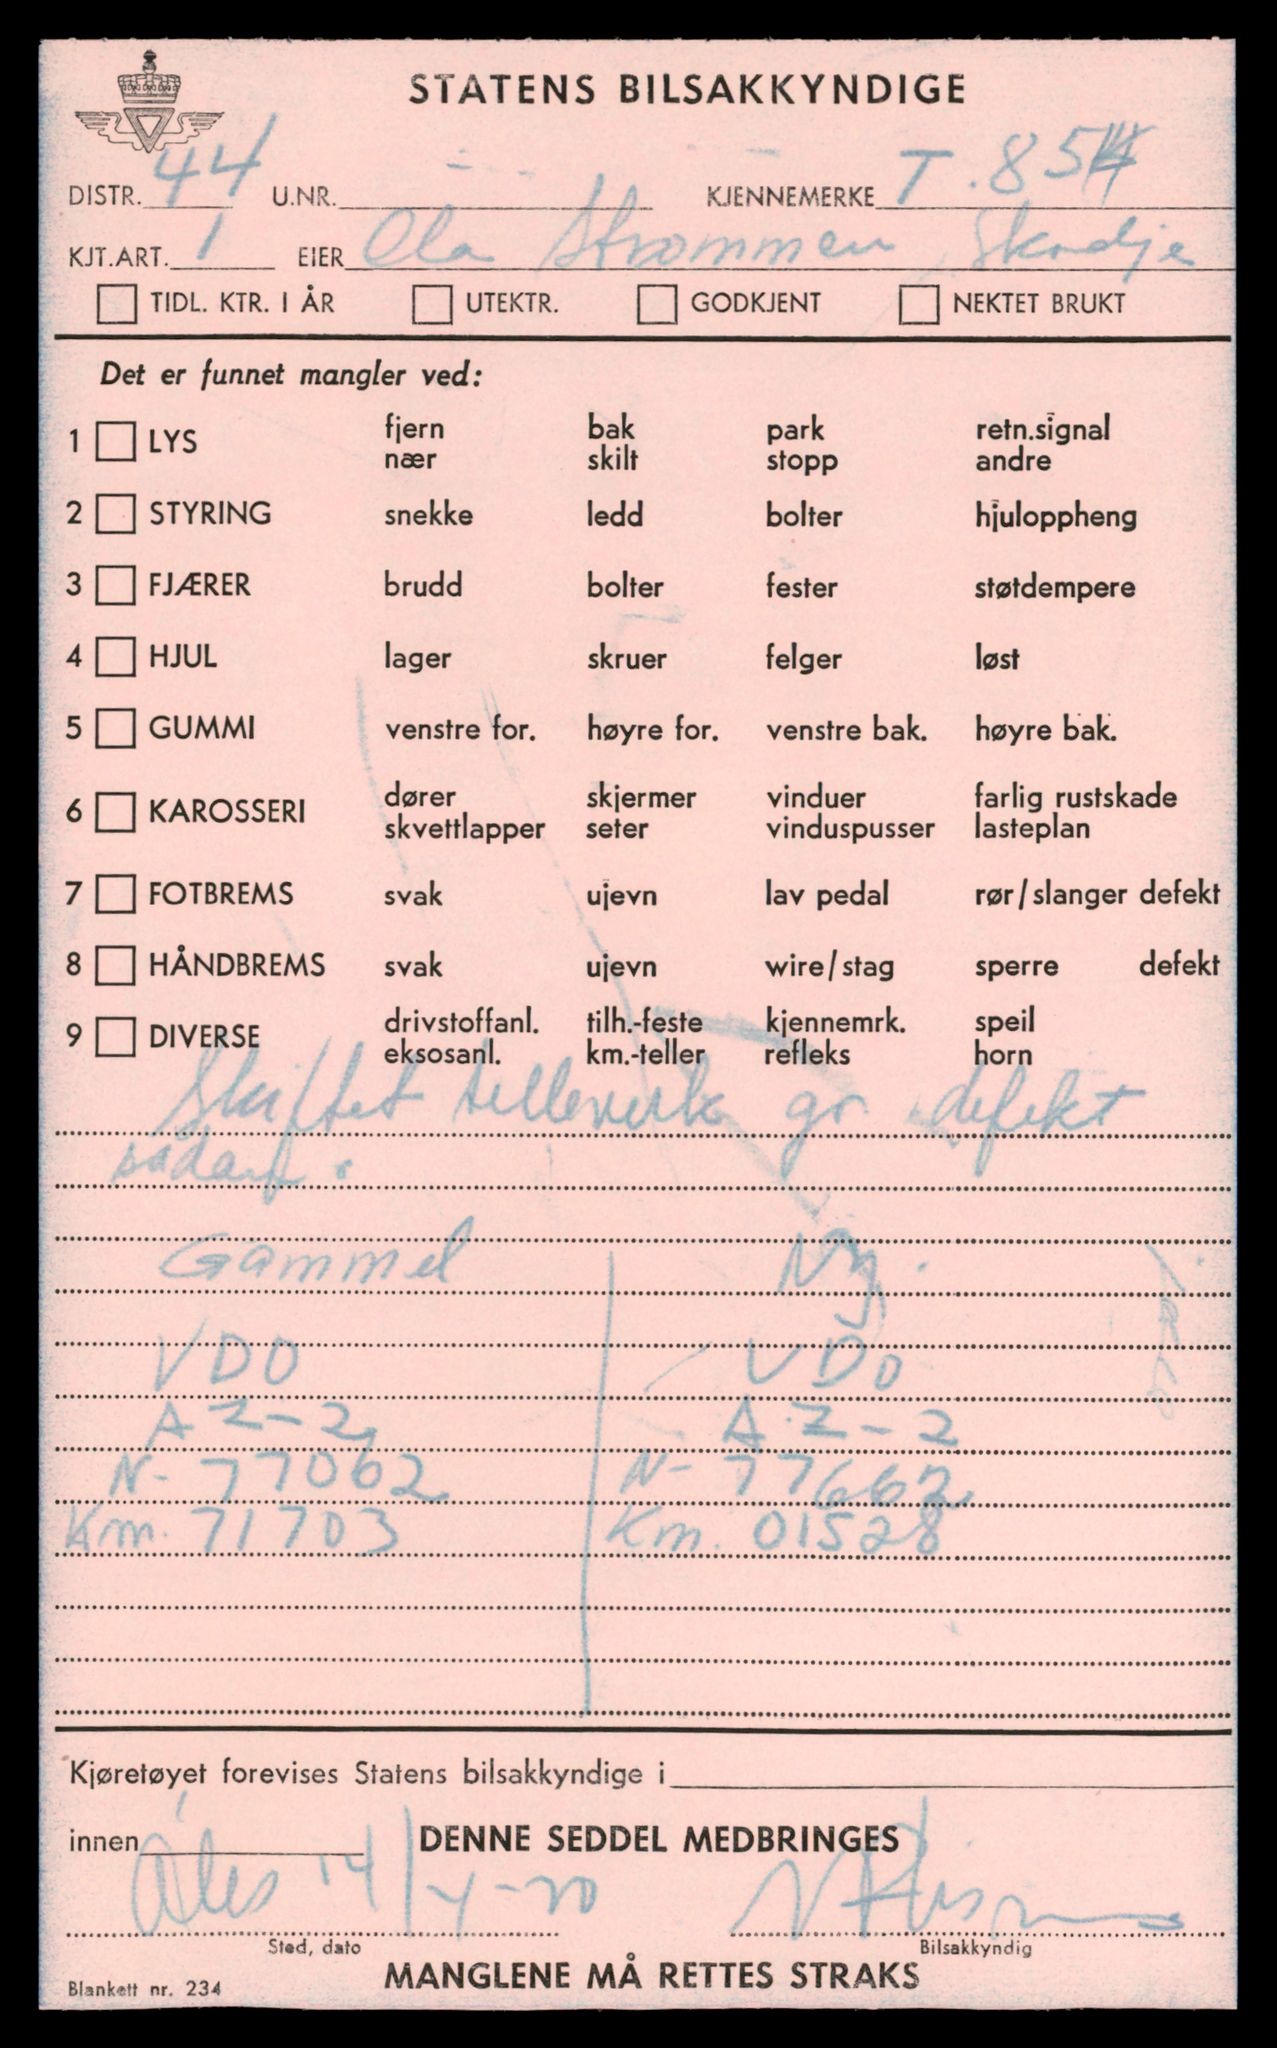 STATENS BILSAKKYNDIGE
DISTR. 44 U.NR. KJENNEMERKE T. 854
KJT.ART. 1 EIER Ola Strømmen, Skodje
TIDL. KTR. I ÅR UTEKTR. GODKJENT NEKTET BRUKT
Det er funnet mangler ved:
1 LYS fjern bak park retn.signal
nær skilt stopp andre
2 STYRING snekke ledd bolter hjuloppheng
3 FJÆRER brudd bolter fester støtdempere
4 HJUL lager skruer felger løst
5 GUMMI venstre for. høyre for. venstre bak. høyre bak.
6 KAROSSERI dører skjermer vinduer farlig rustskade
skvettlapper seter vinduspusser lasteplan
7 FOTBREMS svak ujevn lav pedal rør/slanger defekt
8 HÅNDBREMS svak ujevn wire/stag sperre defekt
9 DIVERSE drivstoffanl. tilh.-feste kjennemrk. speil
eksosanl. km.-teller refleks horn
Skiftet telleverk gr. defekt
sådant.
Gammel Ny.
VDO VDO
AZ-2 AZ-2
N- 77062 N- 77662
Km. 71703 Km. 01528
Kjøretøyet forevises Statens bilsakkyndige i
innen DENNE SEDDEL MEDBRINGES
Åles 14/4-70
Sted, dato Bilsakkyndig
MANGLENE MÅ RETTES STRAKS
Blankett nr. 234